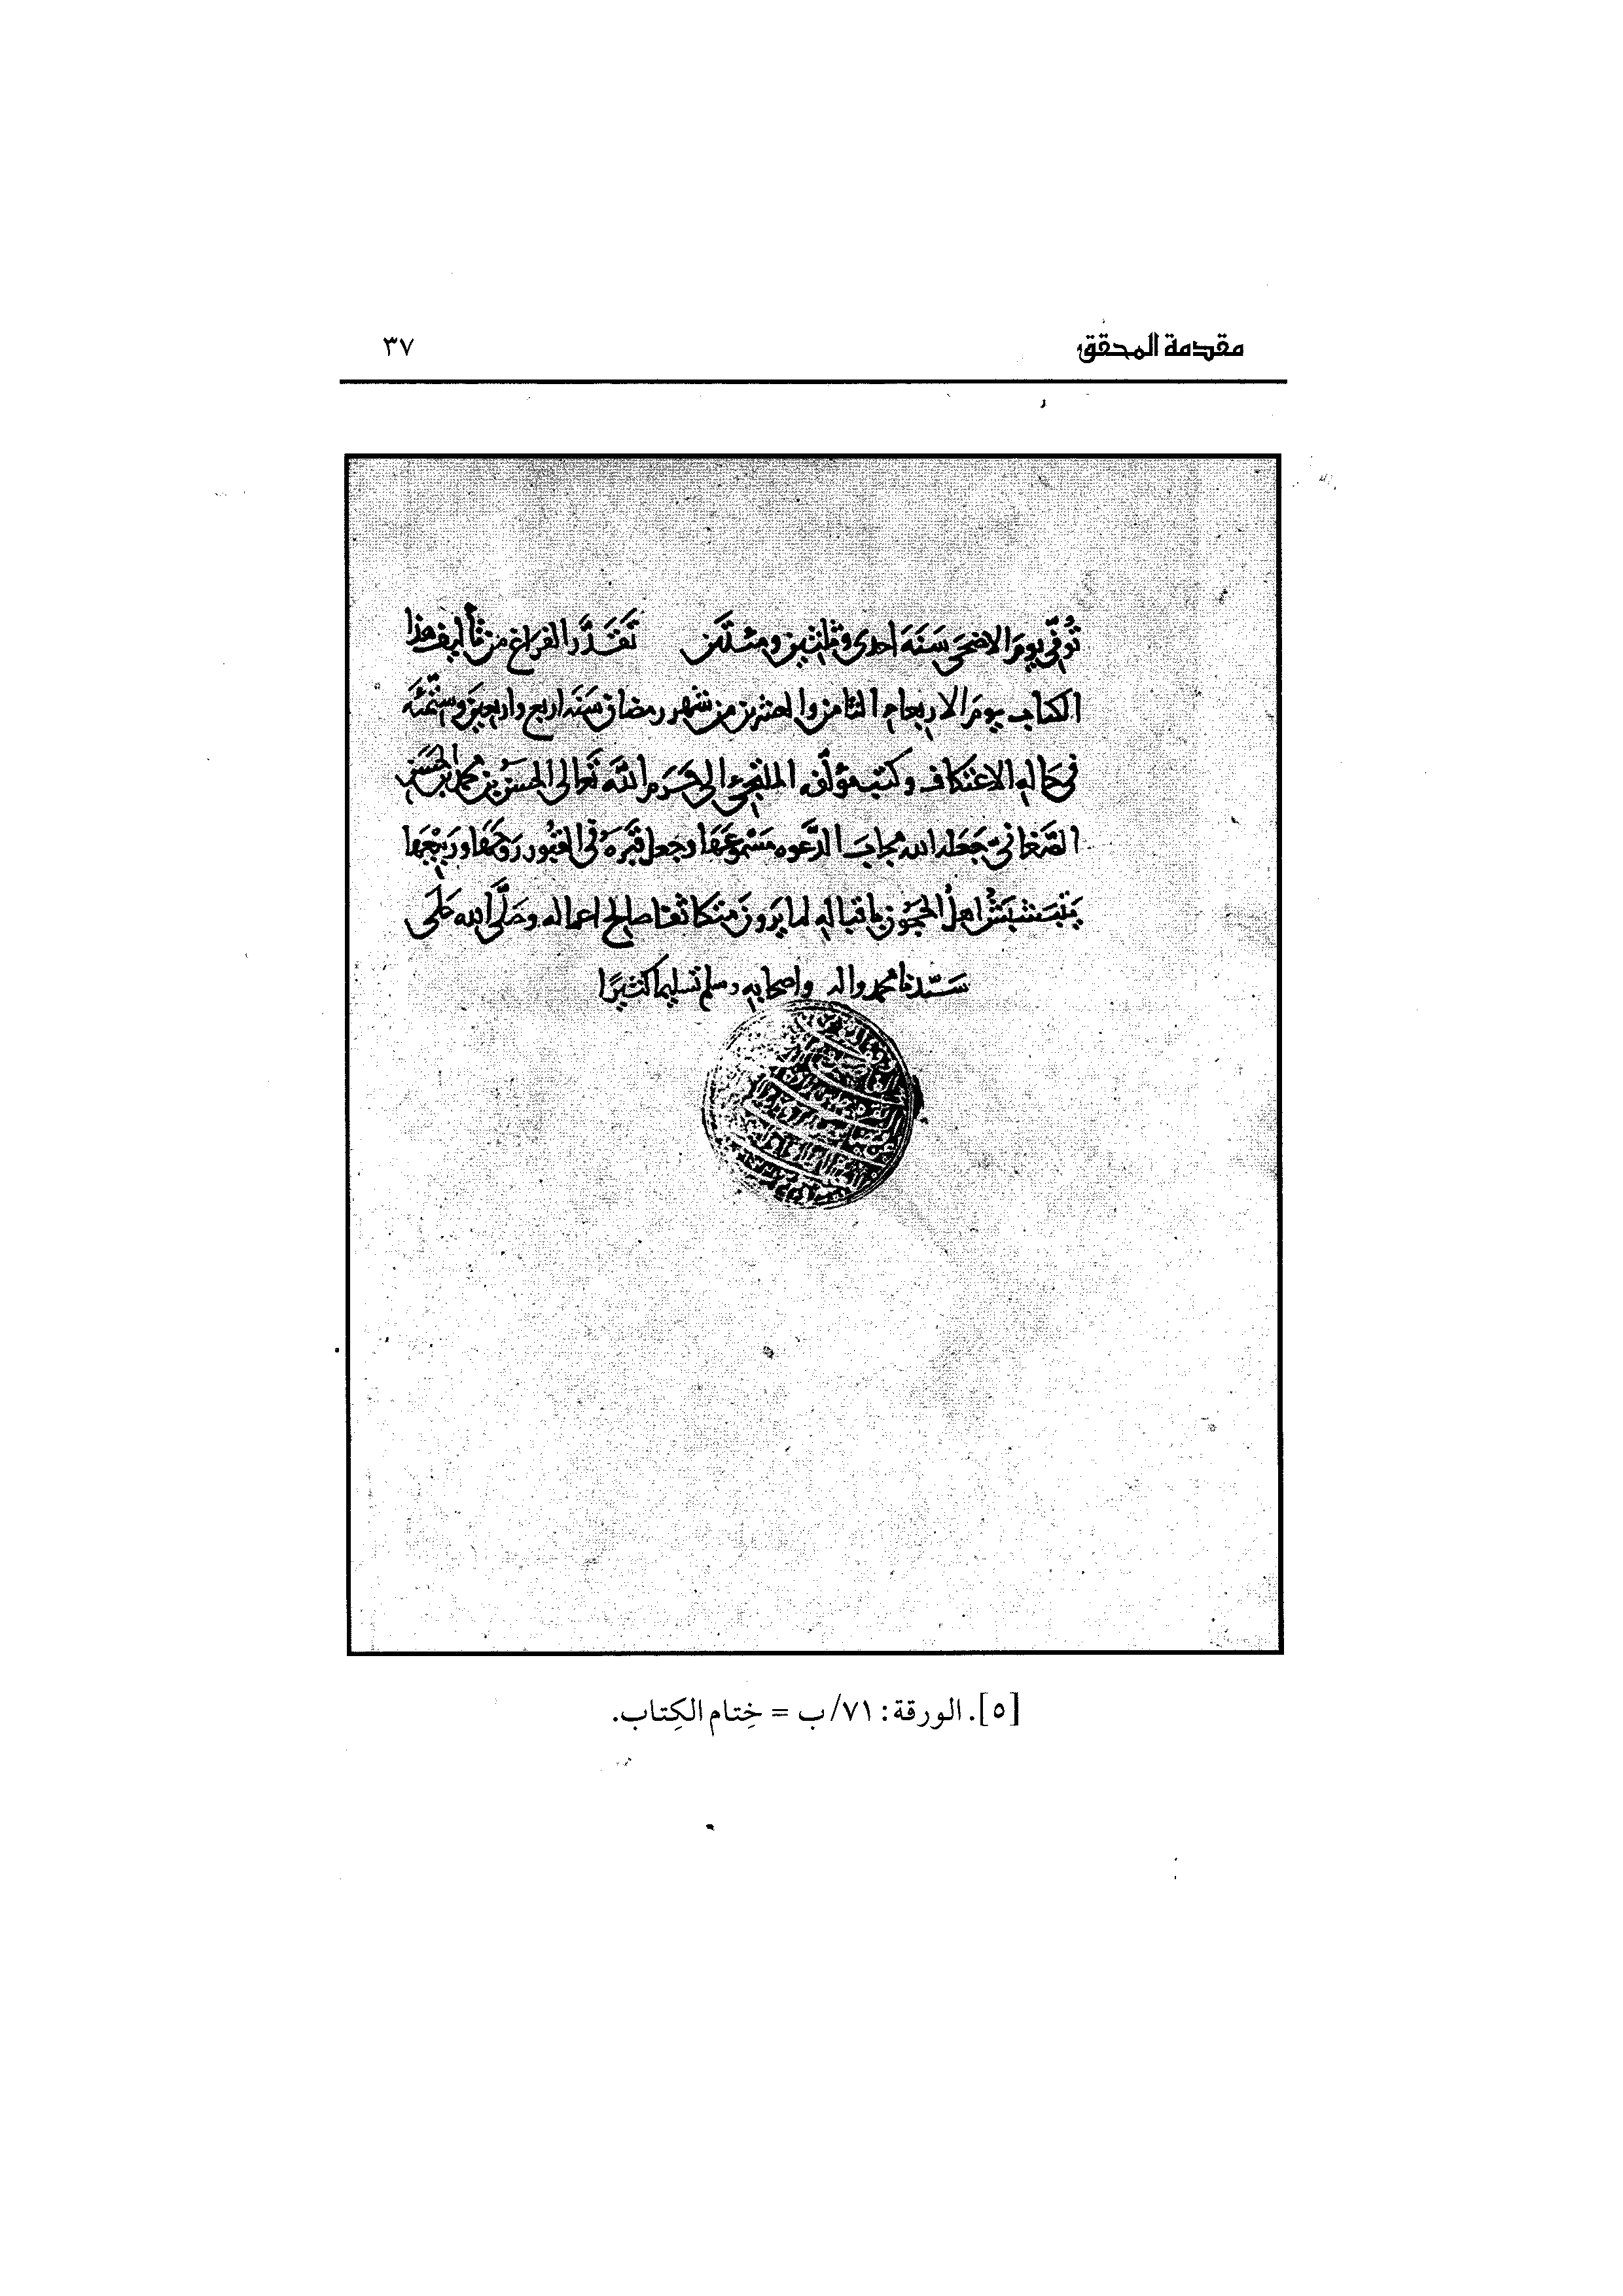 مقدمة المحقق
٣٧
تُوُفِّيَ يومَ الاضحَى سَنَةَ احدى وثلثين ومئتَين تَقَدَّرَ الفراغ من تأليف هذا
الكتاب يومَ الاربعاء الثامن والعشرين من شهر رمضان سَنَة اربع واربعين وستّمئة
في حالة الاعتكاف وكتب مؤلّفه الملتجئ الى حَرَم الله تَعالى الحسن بن محمد بن الحَسَن
الصَّغاني جَعَله الله مجاب الدَّعوه مَسْمُوعَها وجعل قَبْرَهُ في القُبور رَوْضَها ورَبِيْعَها
اهلُ الحَجُون باقباله لما يَرَون صالح اعماله وصَلَّى الله على
سَيّدنا محمد واله واصحابه وسلم تسليما كثيرًا
[٥]. الورقة: ٧١/ب = خِتام الكِتاب.